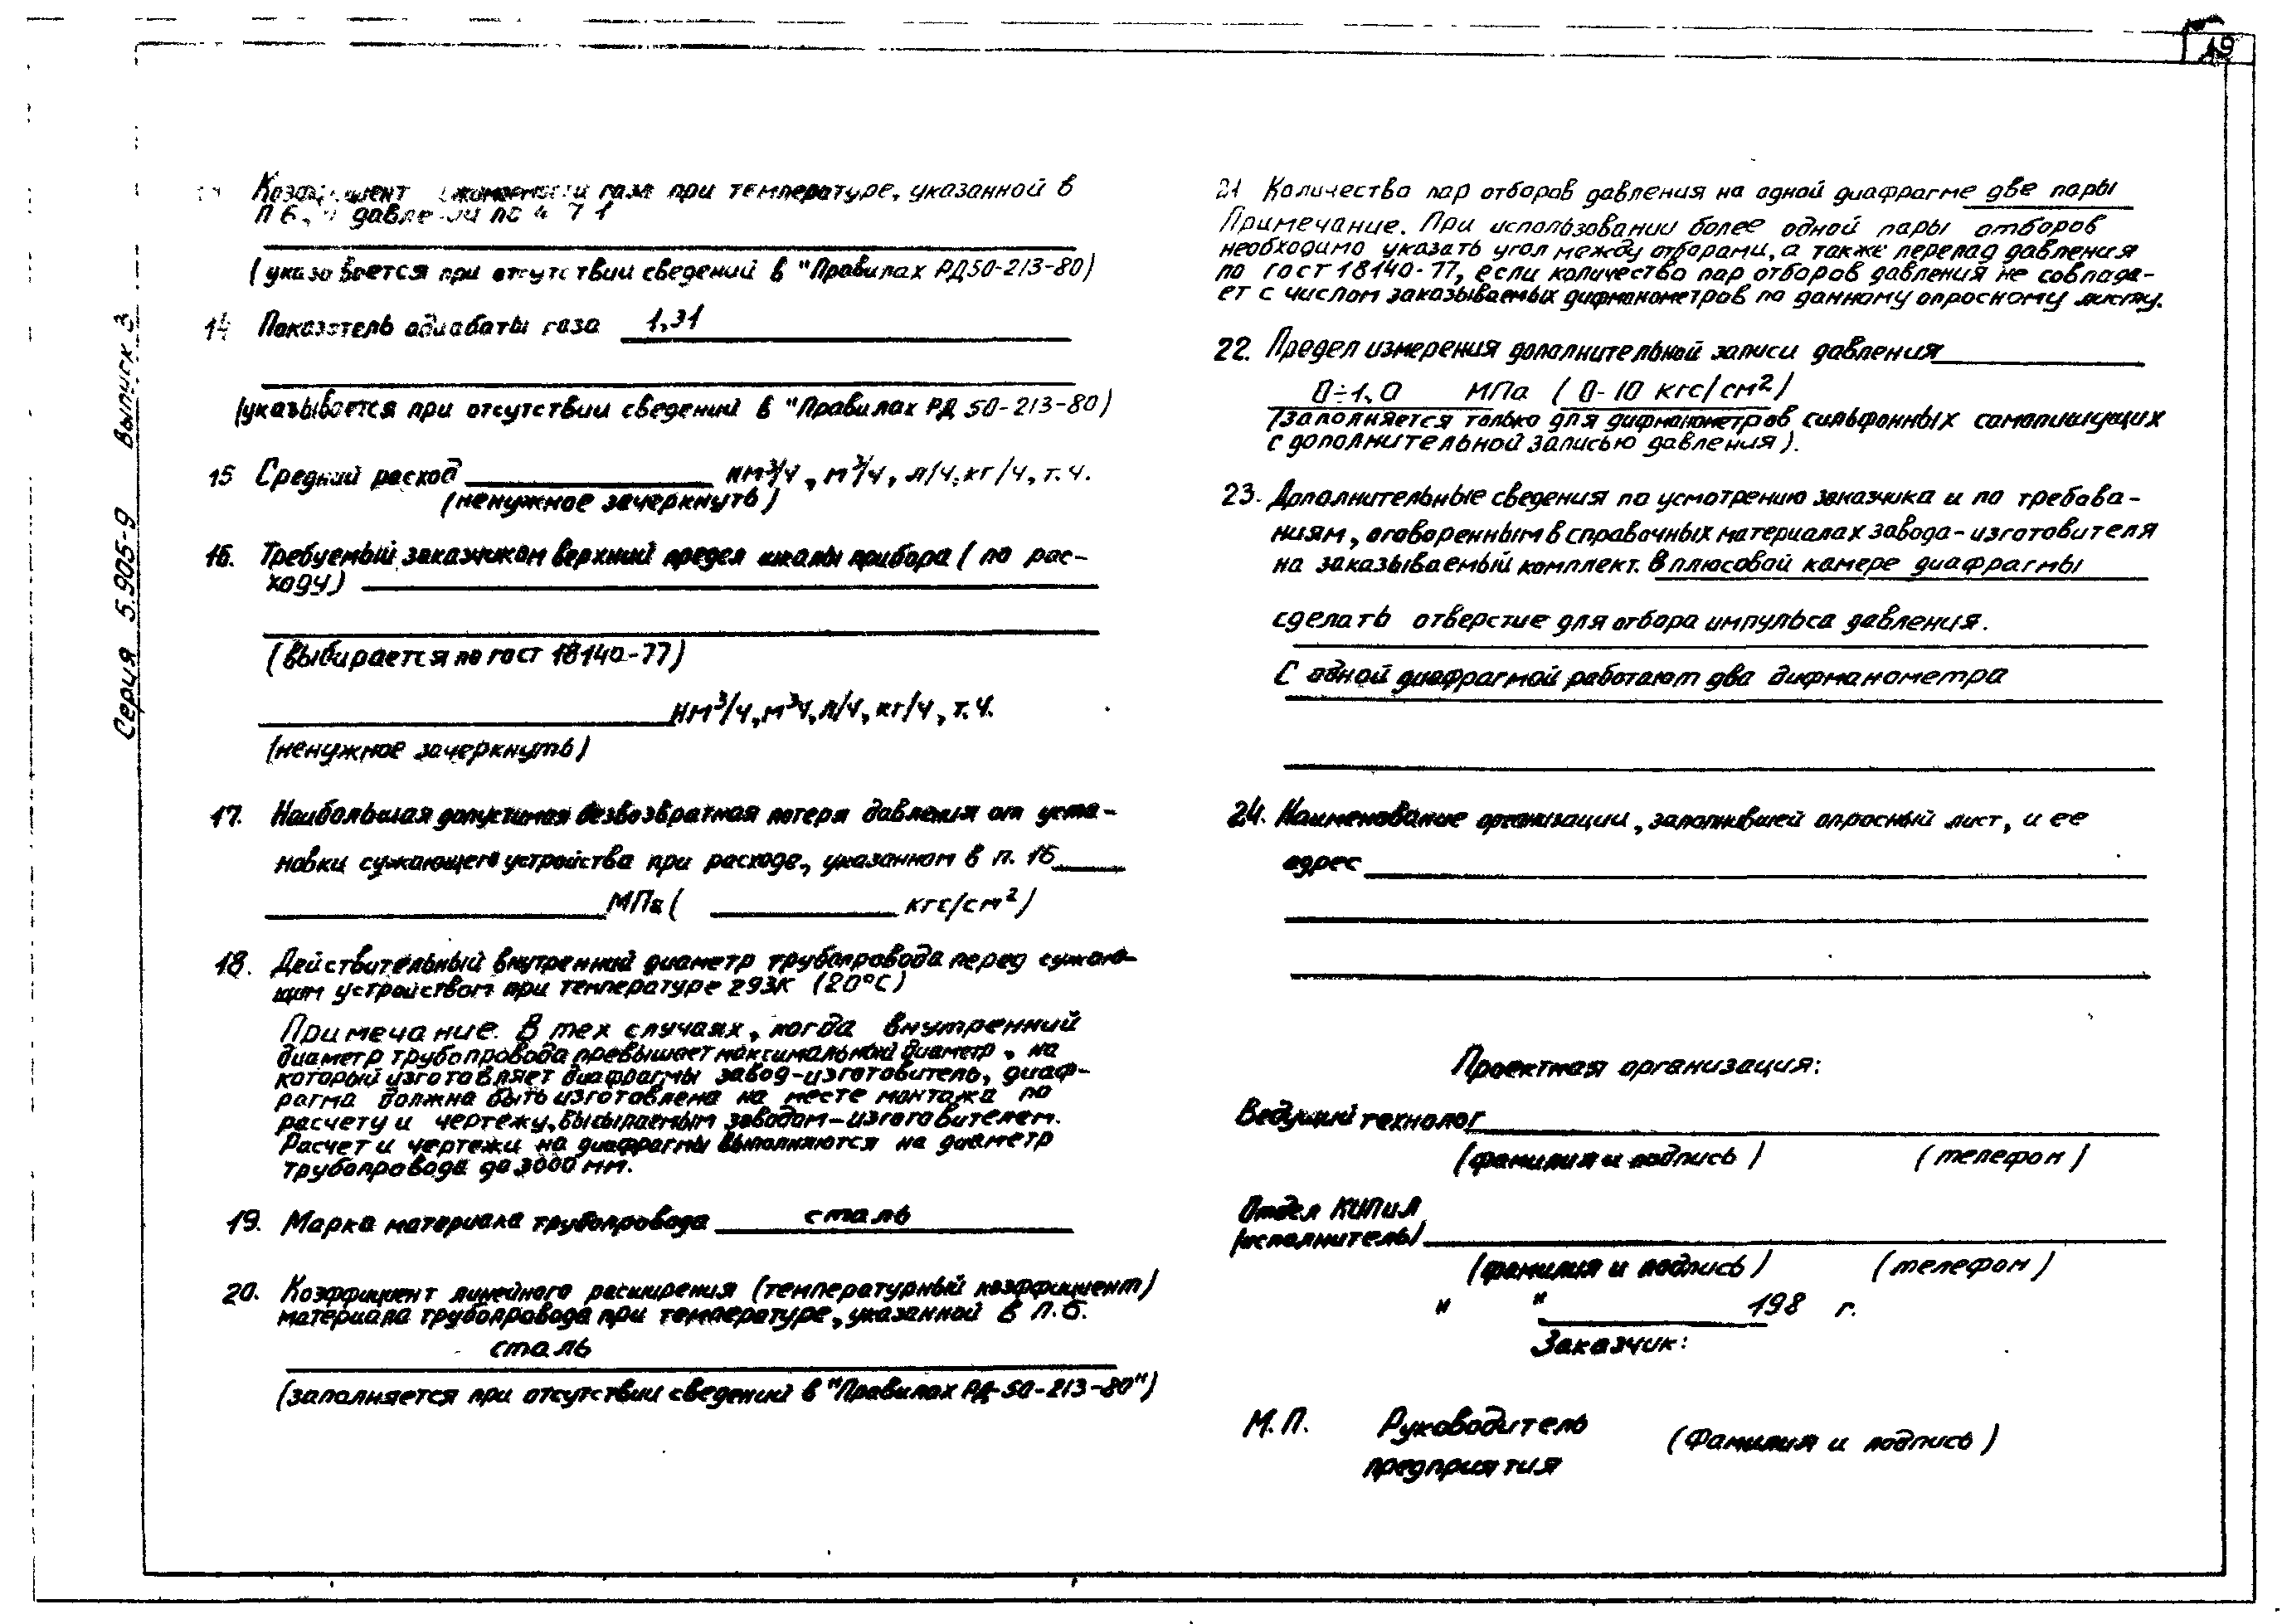 19
Серия 5.905-9 Выпуск 3
газа при температуре, указанной в
(указывается при отсутствии сведений в "Правилах РД50-213-80)
14 Показатель адиабаты газа 1,31
(указывается при отсутствии сведений в "Правилах РД 50-213-80)
15 Средний расход нм³/ч, м³/ч, л/ч, кг/ч, т.ч.
(ненужное зачеркнуть)
16. Требуемый заказчиком верхний предел шкалы прибора (по рас-
ходу)
(выбирается по гост 18140-77)
нм³/ч, м³ч, л/ч, кг/ч, т.ч.
(ненужное зачеркнуть)
17. Наибольшая допустимая безвозвратная потеря давления от уста-
новки сужающего устройства при расходе, указанном в п. 16
МПа ( кгс/см²)
18. Действительный внутренний диаметр трубопровода перед сужаю-
щим устройством при температуре 293К (20°С)
Примечание. В тех случаях, когда внутренний
диаметр трубопровода превышает максимальный диаметр, на
который изготовляет диафрагмы завод-изготовитель, диаф-
рагма должна быть изготовлена на месте монтажа по
расчету и чертежу, высылаемым заводом-изготовителем.
Расчет и чертежи на диафрагмы выполняются на диаметр
трубопровода до 3000 мм.
19. Марка материала трубопровода сталь
20. Коэффициент линейного расширения (температурный коэффициент)
материала трубопровода при температуре, указанной в п.6.
сталь
(заполняется при отсутствии сведений в "Правилах РД-50-213-80")
21 Количество пар отборов давления на одной диафрагме две пары
Примечание. При использовании более одной пары отборов
необходимо указать угол между отборами, а также перепад давления
по гост 18140-77, если количество пар отборов давления не совпада-
ет с числом заказываемых дифманометров по данному опросному листу.
22. Предел измерения дополнительной записи давления
0÷1,0 МПа (0-10 кгс/см²)
(заполняется только для дифманометров сильфонных самопишущих
с дополнительной записью давления).
23. Дополнительные сведения по усмотрению заказчика и по требова-
ниям, оговоренным в справочных материалах завода-изготовителя
на заказываемый комплект. В плюсовой камере диафрагмы
сделать отверстие для отбора импульса давления.
С одной диафрагмой работают два дифманометра
24. Наименование организации, заполнившей опросный лист, и ее
адрес
Проектная организация:
Ведущий технолог
(фамилия и подпись) (телефон)
Отдел КИПиА
(исполнитель)
(фамилия и подпись) (телефон)
" " 198 г.
Заказчик:
М.П. Руководитель (Фамилия и подпись)
предприятия